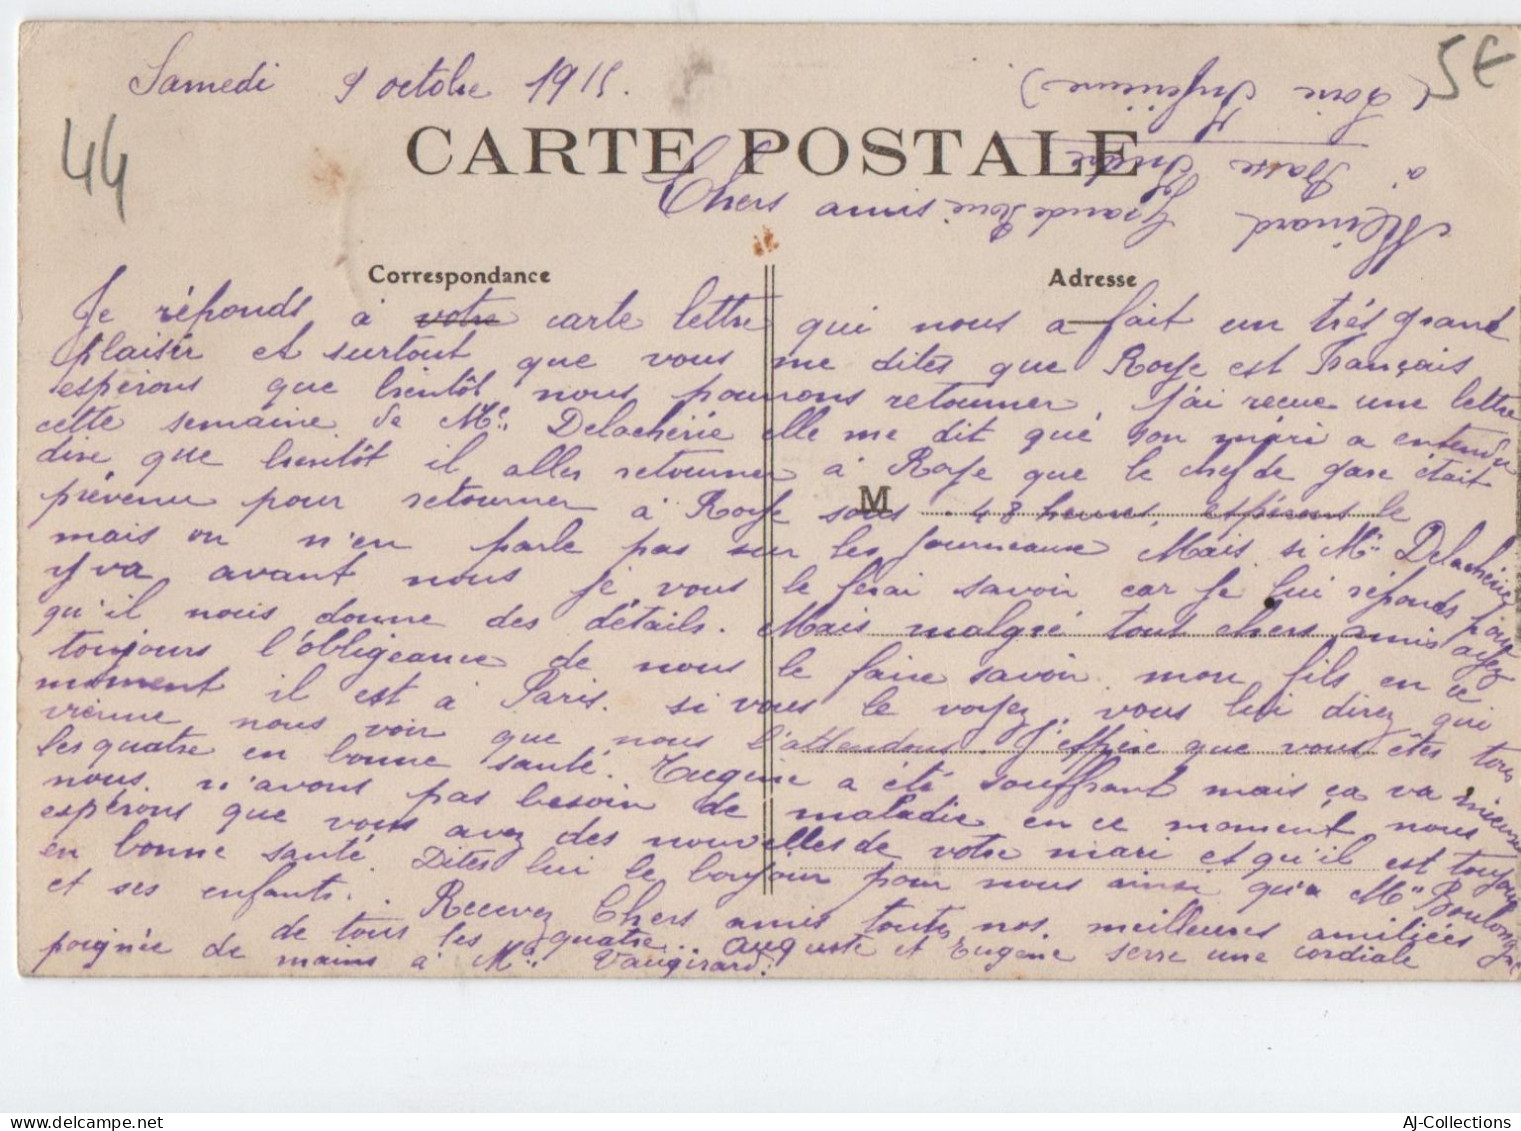 Samedi 9 octobre 1915.
5€
44
(Loire Inférieure)
à Basse Indre
Grande Rue
CARTE POSTALE
Chers amis
Correspondance
Adresse
Je réponds à votre carte lettre qui nous a fait un très grand
plaisir et surtout que vous me dites que Roye est Français
espérons que bientôt nous pourrons retourner, j'ai reçue une lettre
cette semaine de Me Delachérie elle me dit que son mari a entendu
dire que bientôt il aller retourner à Roye que le chef de gare était
prévenu pour retourner à Roye sous 48 heures, espérons le
M
mais on n'en parle pas sur les journeaux Mais si Me Delachérie
y va avant nous je vous le ferai savoir car je lui réponds pour
qu'il nous donne des détails. Mais malgré tout chers amis ayez
toujours l'obligeance de nous le faire savoir. mon fils en ce
moment il est à Paris. si vous le voyez, vous lui direz qui
vienne nous voir que nous l'attendons. J'espère que vous êtes tous
les quatre en bonne santé. Eugène a été souffrant mais ça va mieux
nous n'avons pas besoin de maladie en ce moment, nous
espérons que vous avez des nouvelles de votre mari et qu'il est toujours
en bonne santé. Dites lui le bonjour pour nous ainsi qu'a Me Boulongne
et ses enfants. Recevez Chers amis toutes nos meilleures amitiées
de tous les quatre.. Auguste et Eugène serre une cordiale
poignée de mains à Me Vaugirard.
AJ-Collections